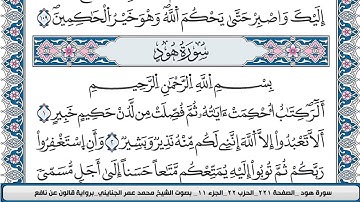 إِلَيْكَ وَاصْبِرْ حَتَّىٰ يَحْكُمَ اَ۬للَّهُ وَهُوَ خَيْرُ اُ۬لْحَٰكِمِينَۖ ١٠٩
سُورَةُ هُودٍ
بِسْمِ اِ۬للَّهِ اِ۬لرَّحْمَٰنِ اِ۬لرَّحِيمِ
أَلَٓرۖ كِتَٰبٌ اُحْكِمَتَ اٰيَٰتُهُۥ ثُمَّ فُصِّلَتْ مِن لَّدُنْ حَكِيمٍ خَبِيرٍ ١
اَلَّا تَعْبُدُوٓاْ إِلَّا اَ۬للَّهَۖ إِنَّنِي لَكُم مِّنْهُ نَذِيرٌ وَبَشِيرٌۖ ٢ وَأَنِ اِ۪سْتَغْفِرُواْ
رَبَّكُمْ ثُمَّ تُوبُوٓاْ إِلَيْهِ يُمَتِّعْكُم مَّتَٰعاً حَسَناً إِلَىٰٓ أَجَلٍ مُّسَمّىٗ
سورة هود _الصفحة ٢٢١_ الحزب ٢٢_ الجزء ١١_ بصوت الشيخ محمد عمر الجنايني_برواية قالون عن نافع